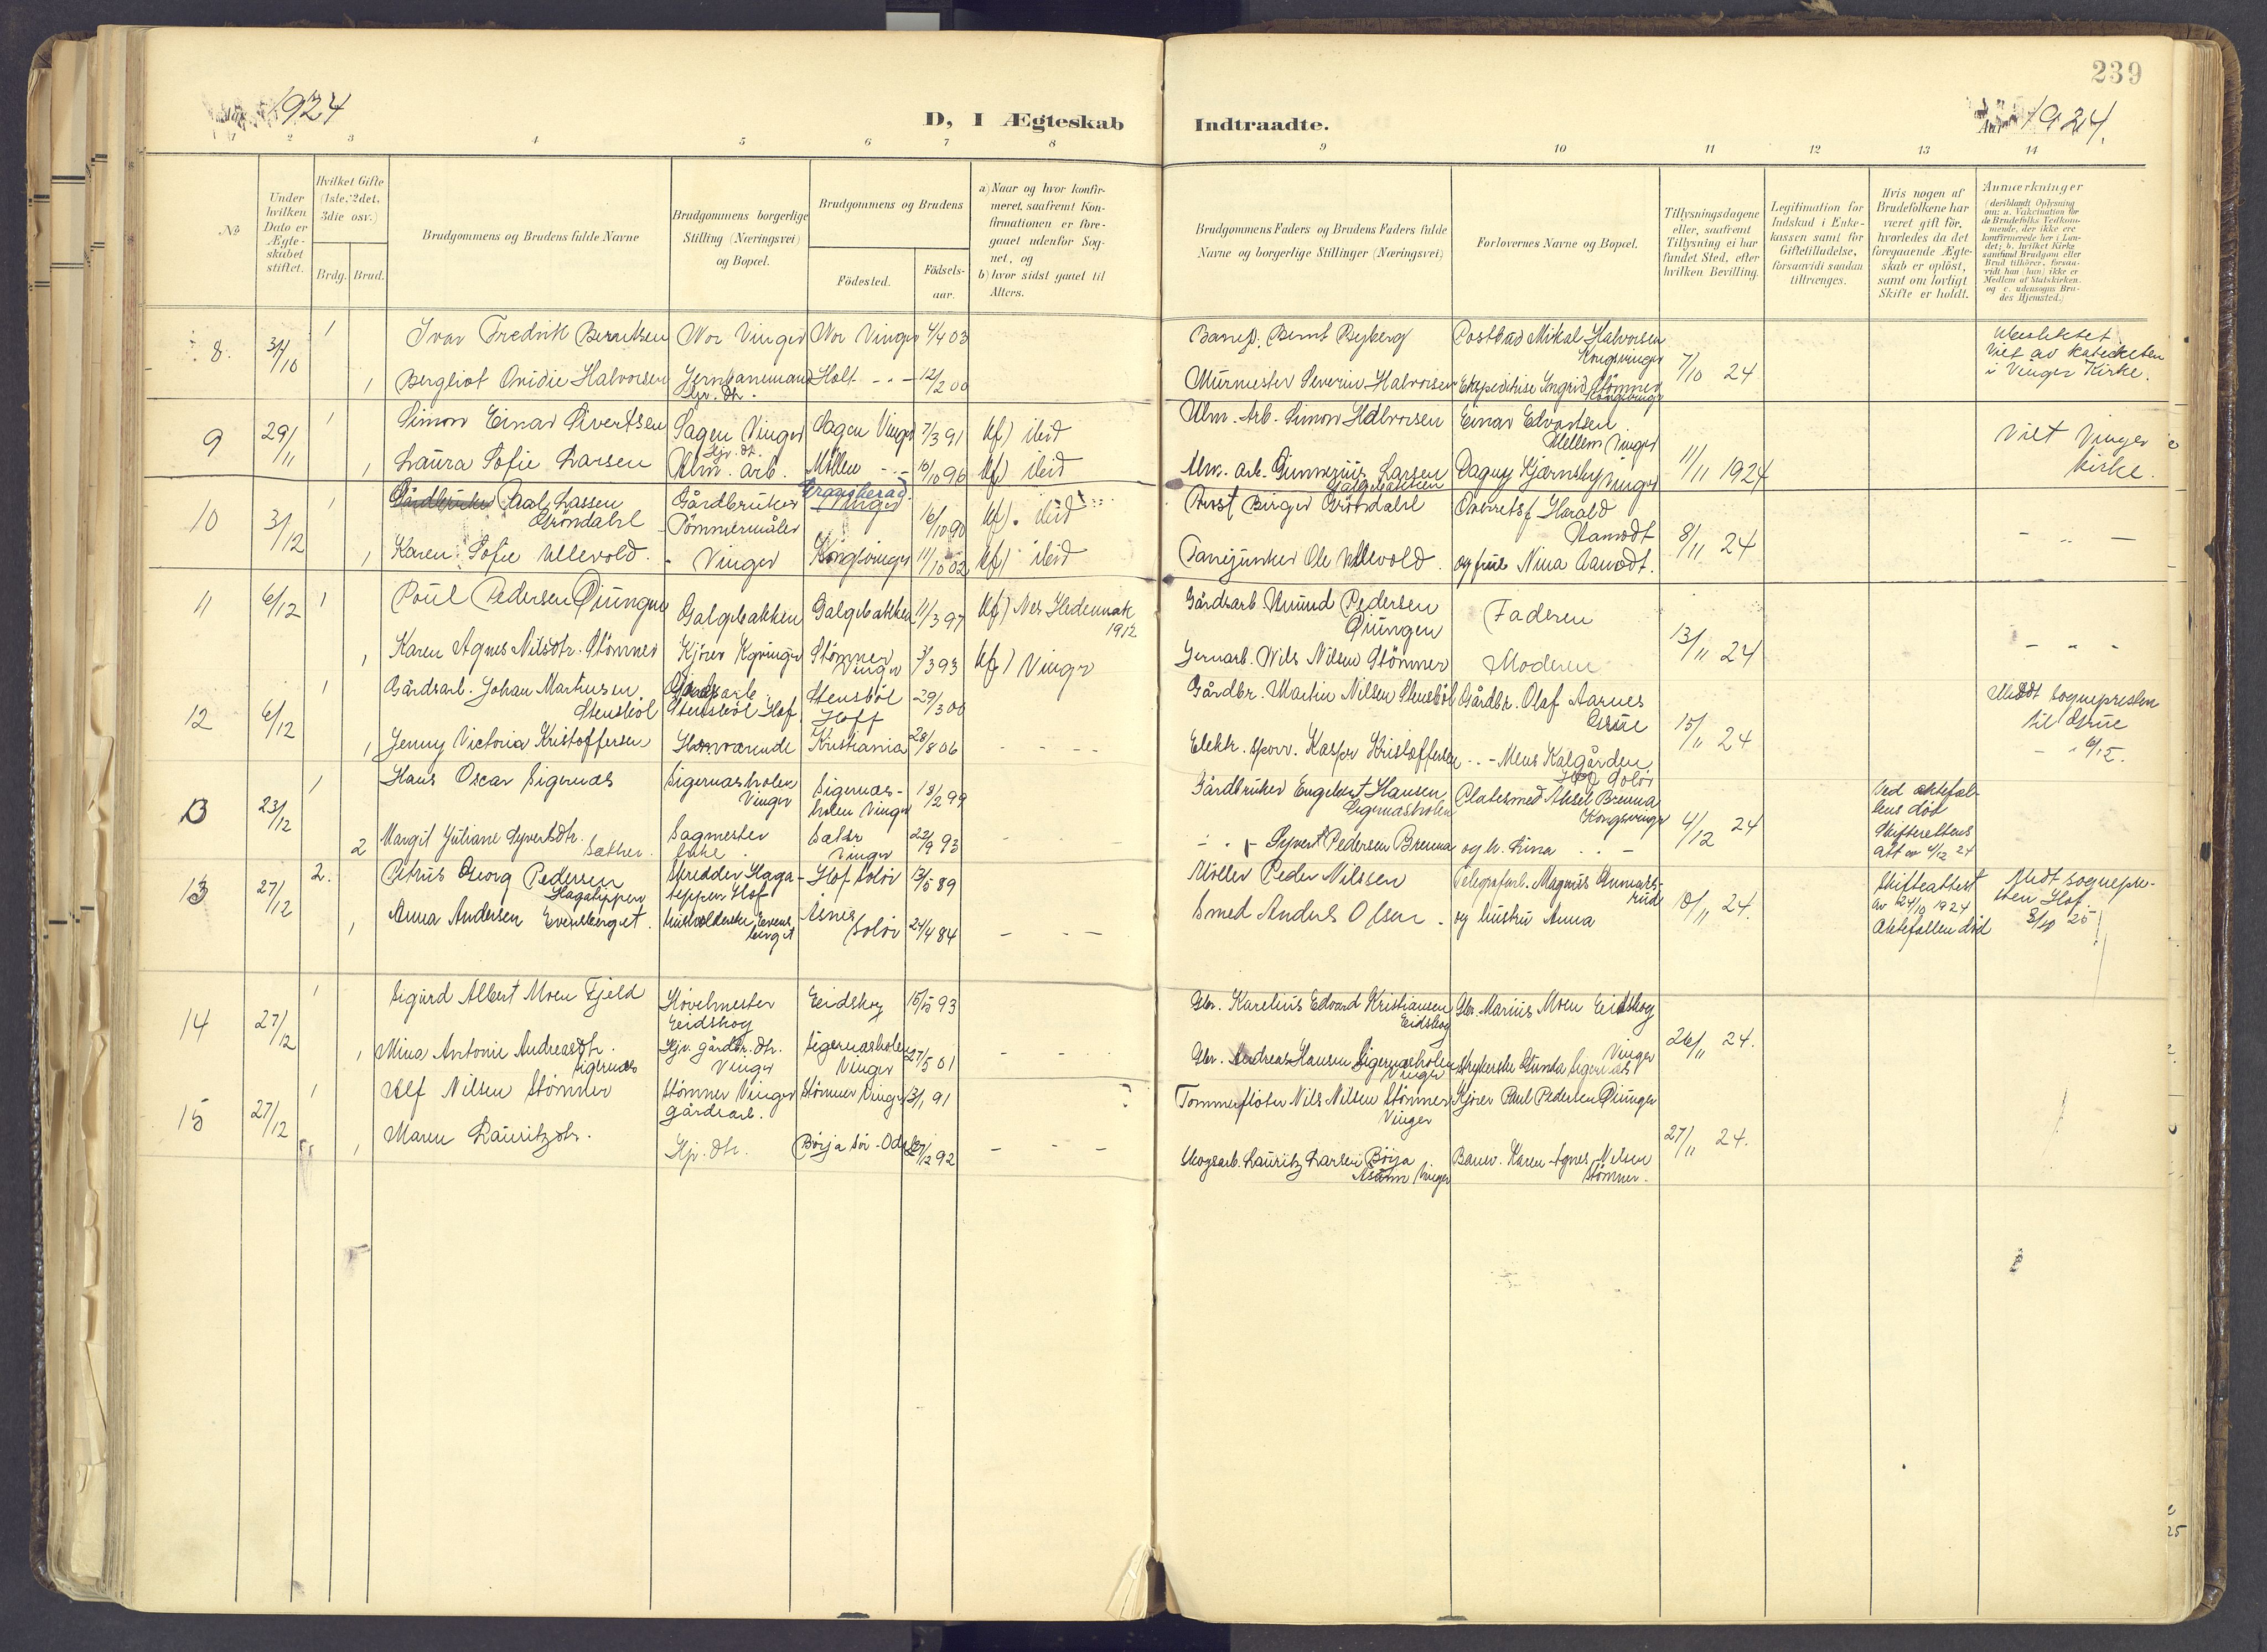 239
1924
D, I Ægteskab Indtraadte.
Aar 1924.
2 3 4 5 6 7 8 9 10 11 12 13 14
No
Under hvilken Dato er Ægteskabet stiftet.
Hvilket Gifte (1ste, 2det, 3die osv.)
Brdg. Brud.
Brudgommens og Brudens fulde Navne
Brudgommens borgerlige Stilling (Næringsvei) og Bopæl.
Brudgommens og Brudens
Födested.
Födselsaar.
a) Naar og hvor konfirmeret, saafremt Konfirmationen er foregaaet udenfor Sognet, og
b) hvor sidst gaaet til Alters.
Brudgommens Faders og Brudens Faders fulde Navne og borgerlige Stillinger (Næringsvei)
Forlovernes Navne og Bopæl.
Tillysningsdagene eller, saafremt Tillysning ei har fundet Sted, efter hvilken Bevilling.
Legitimation for Indskud i Enkekassen samt for Giftetilladelse, forsaavidt saadan tiltrænges.
Hvis nogen af Brudefolkene har været gift för, hvorledes da det foregaaende Ægteskab er oplöst, samt om lovligt Skifte er holdt.
Anmærkninger (deriblandt Oplysning om: a. Vakcination for de Brudefolks Vedkommende, der ikke ere konfirmerede her i Landet; b. hvilket Kirkesamfund Brudgom eller Brud tilhörer, forsaavidt han (hun) ikke er Medlem af Statskirken, og c. udensogns Brudes Hjemsted.)
8. 1 Ivar Fredrik Berntsen Nor Vinger Nor Vinger 4/4 03 Bernt Ryberg Postbud Mikal Halvorsen
Kongsvinger 7/10 24 Viet av
i Vinger Kirke.
1 Bergliot Ovidie Halvorsen Jernbanemand Holt - " - 12/2 00 Murmester Severin Halvorsen Ekspeditrise Ingrid Stömner
Kongsvinger
9 29/11 1 Simon Einar Sivertsen Sagen Vinger Sagen Vinger 7/3 91 kf) ibid Alm. Arb. Simon Halvorsen Einar Edvardsen
Mellem Vinger 11/11 1924 Viet Vinger kirke.
1 Laura Sofie Larsen Alm. arb. Möllen - " - 10/10 96 kf) ibid Alm. arb. Gunnerius Larsen Dagny Kjærnsby Vinger
Galgebakken
10 3/12 1 Paal Lassen Gröndahl Gårdbruker Tömmermåler Vinger 16/10 90 kf). ibid Birger Gröndahl Harald Aamodt 8/11 24 - " -
1 Karen Sofie Ullevold. - Vinger Kongsvinger 11/10 02 kf) ibid Fanejunker Ole Ullevold. og frue Nina Aamodt.
11 6/12 1 Poul Pedersen Galgebakken Galgebakken 11/3 97 kf) Nes Hedemark
1912 Gårdsarb. Amund Pedersen Faderen 13/11 24 - " -
1 Karen Agnes Nilsdtr. Stömner Kjörer Kgvinger Stömner Vinger 3/3 93 kf) Vinger Jernarb. Nils Nilsen Stömner Moderen
12 6/12 1 Gårdsarb. Johan Martinsen Stensböl Gårdsarb. Stensböl Hof Stensböl Hoff 29/3 00 Gårdbr. Martin Nilsen Stensböl Gårdbr. Olaf Aarnes
Grue 15/11 24 Medt sognepresten til Grue
1 Jenny Victoria Kristoffersen Hjemværende Kristiania 28/8 06 - - - - Kaspar Kristoffersen
13 23/12 1 Hans Oscar Sigernæs Sigernæsholen
Vinger Sigernæsholen Vinger 18/2 99 Gårdbruker Engebret Hansen
Sigernæsholen Platesmed Aksel Brenna
Kongsvinger 4/12 24 Ved ektefællens död
Skifterettens att av 4/12 24
2 Margit Juliane Syvertsdtr. Sæther Sagmester Sæter
Vinger 22/9 93 - - - " - Syvert Pedersen Brenna og h. Lina - " -
13 27/12 2. Petrus Georg Pedersen Hagatippen Skredder Hagatippen Hof Hof Solör 13/5 89 Möller Peder Nilssen Telegrafarb. Magnus Gunnarsrud 10/11 24. Skifteattest
av 24/10 1924
Ektefellen död Medt sognepresten Hof.
1 Anna Andersen Evensberget. Evensberget Solör 24/4 84 - - - Smed Anders Olsen - og hustru Anna
14 27/12 1 Sigurd Albert Moen Fjeld Hövelmester
Eidskog Eidskog 15/5 93 Gbr. Karelius Edvard Kristiansen
Eidskog Gbr. Marius Moen Eidskog 26/11 24.
1 Mina Antonie Andreasdtr. Sigernæs Hjv. gårdbr. dtr.
Vinger Sigernæsholen
Vinger 27/5 01 - - - Gbr. Andreas Hansen Sigernæsholen
Vinger Strykerske Gunda Sigernæs
Vinger
15 27/12 1 Alf Nilsen Stömner Stömner Vinger
gårdsarb. Stömner Vinger 13/1 91 Tömmerflöter Nils Nilsen Stömner
Vinger Kjörer Paul Pedersen 27/11 24.
1 Maren Lauritzdtr. Hjv. dtr. Börja Sör-Odal 27/12 92 - - - Skogsarb. Lauritz Larsen Börja
Vinger Karen Agnes Nilsen
Stömner.